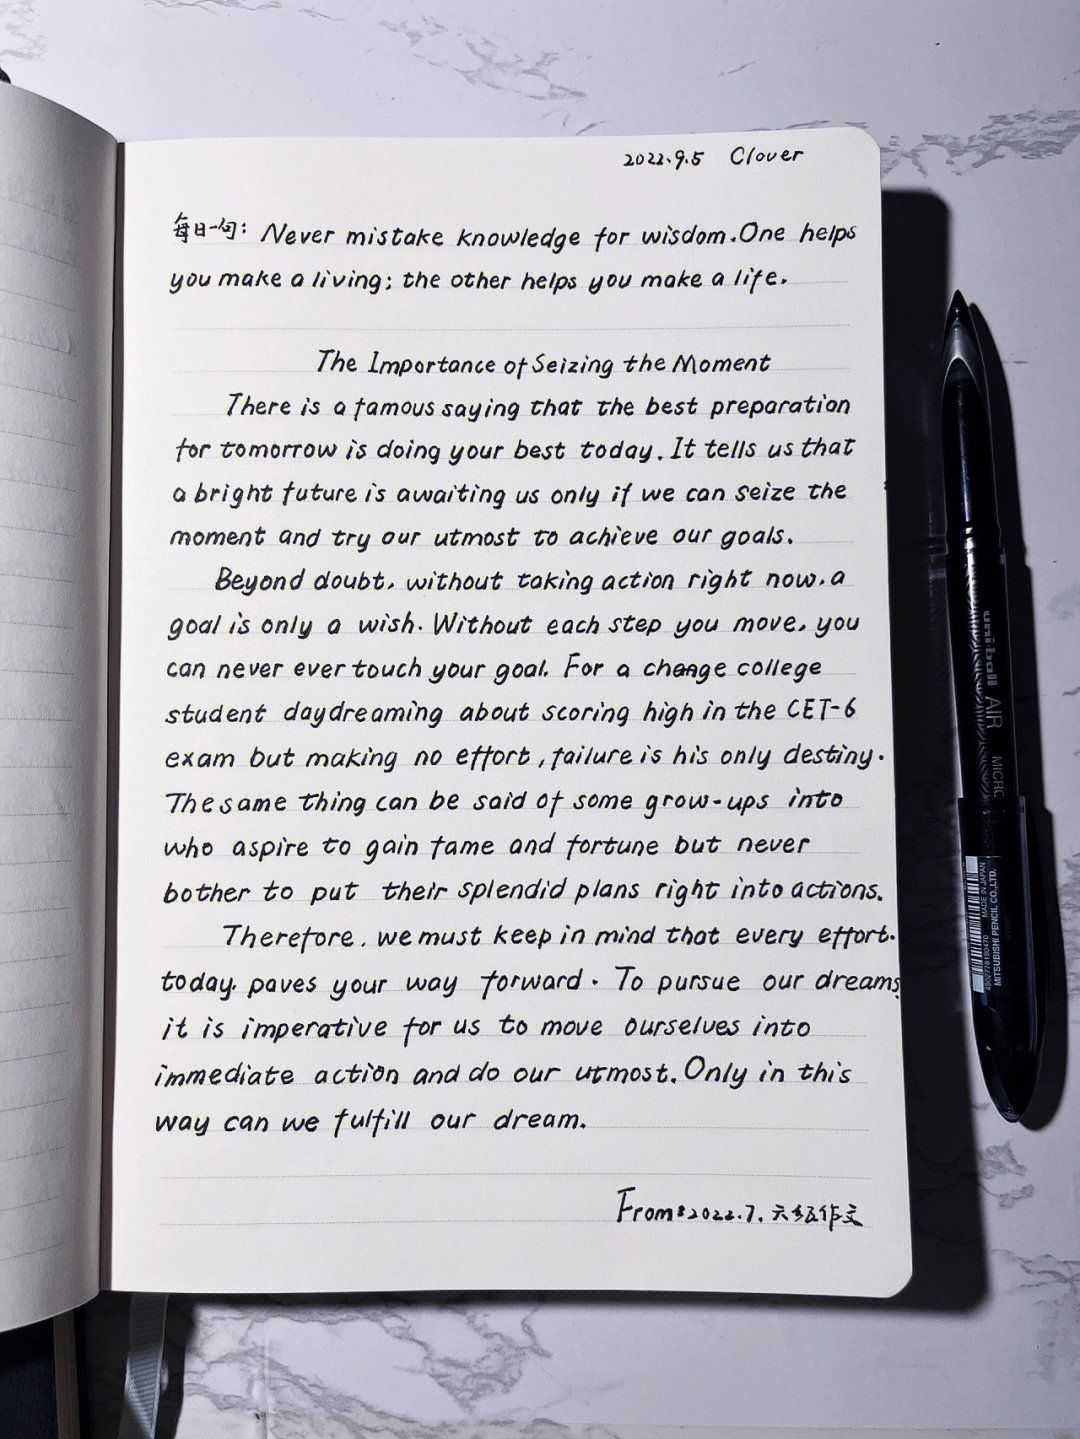 2022.9.5 Clover
每日一句: Never mistake knowledge for wisdom. One helps
you make a living; the other helps you make a life.
The Importance of Seizing the Moment
There is a famous saying that the best preparation
for tomorrow is doing your best today. It tells us that
a bright future is awaiting us only if we can seize the
moment and try our utmost to achieve our goals.
Beyond doubt, without taking action right now, a
goal is only a wish. Without each step you move, you
can never ever touch your goal. For a change college
student daydreaming about scoring high in the CET-6
exam but making no effort, failure is his only destiny.
The same thing can be said of some grow-ups into
who aspire to gain fame and fortune but never
bother to put their splendid plans right into actions.
Therefore, we must keep in mind that every effort.
today. paves your way forward. To pursue our dreams,
it is imperative for us to move ourselves into
immediate action and do our utmost. Only in this
way can we fulfill our dream.
From:2022.7.六级作文
uni-ball AIR MICRO
MADE IN JAPAN
MITSUBISHI PENCIL CO.,LTD.